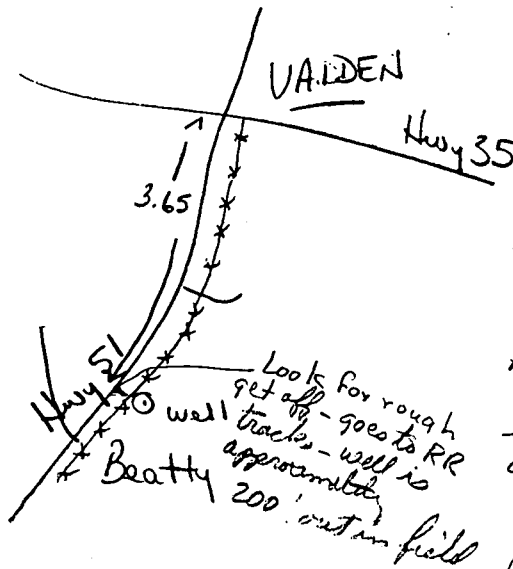 VAIDEN
Hwy 35
3.65
Hwy 51
Look for rough
get off - goes to RR
tracks - well is
approximately
200' out in field
well
Beatty